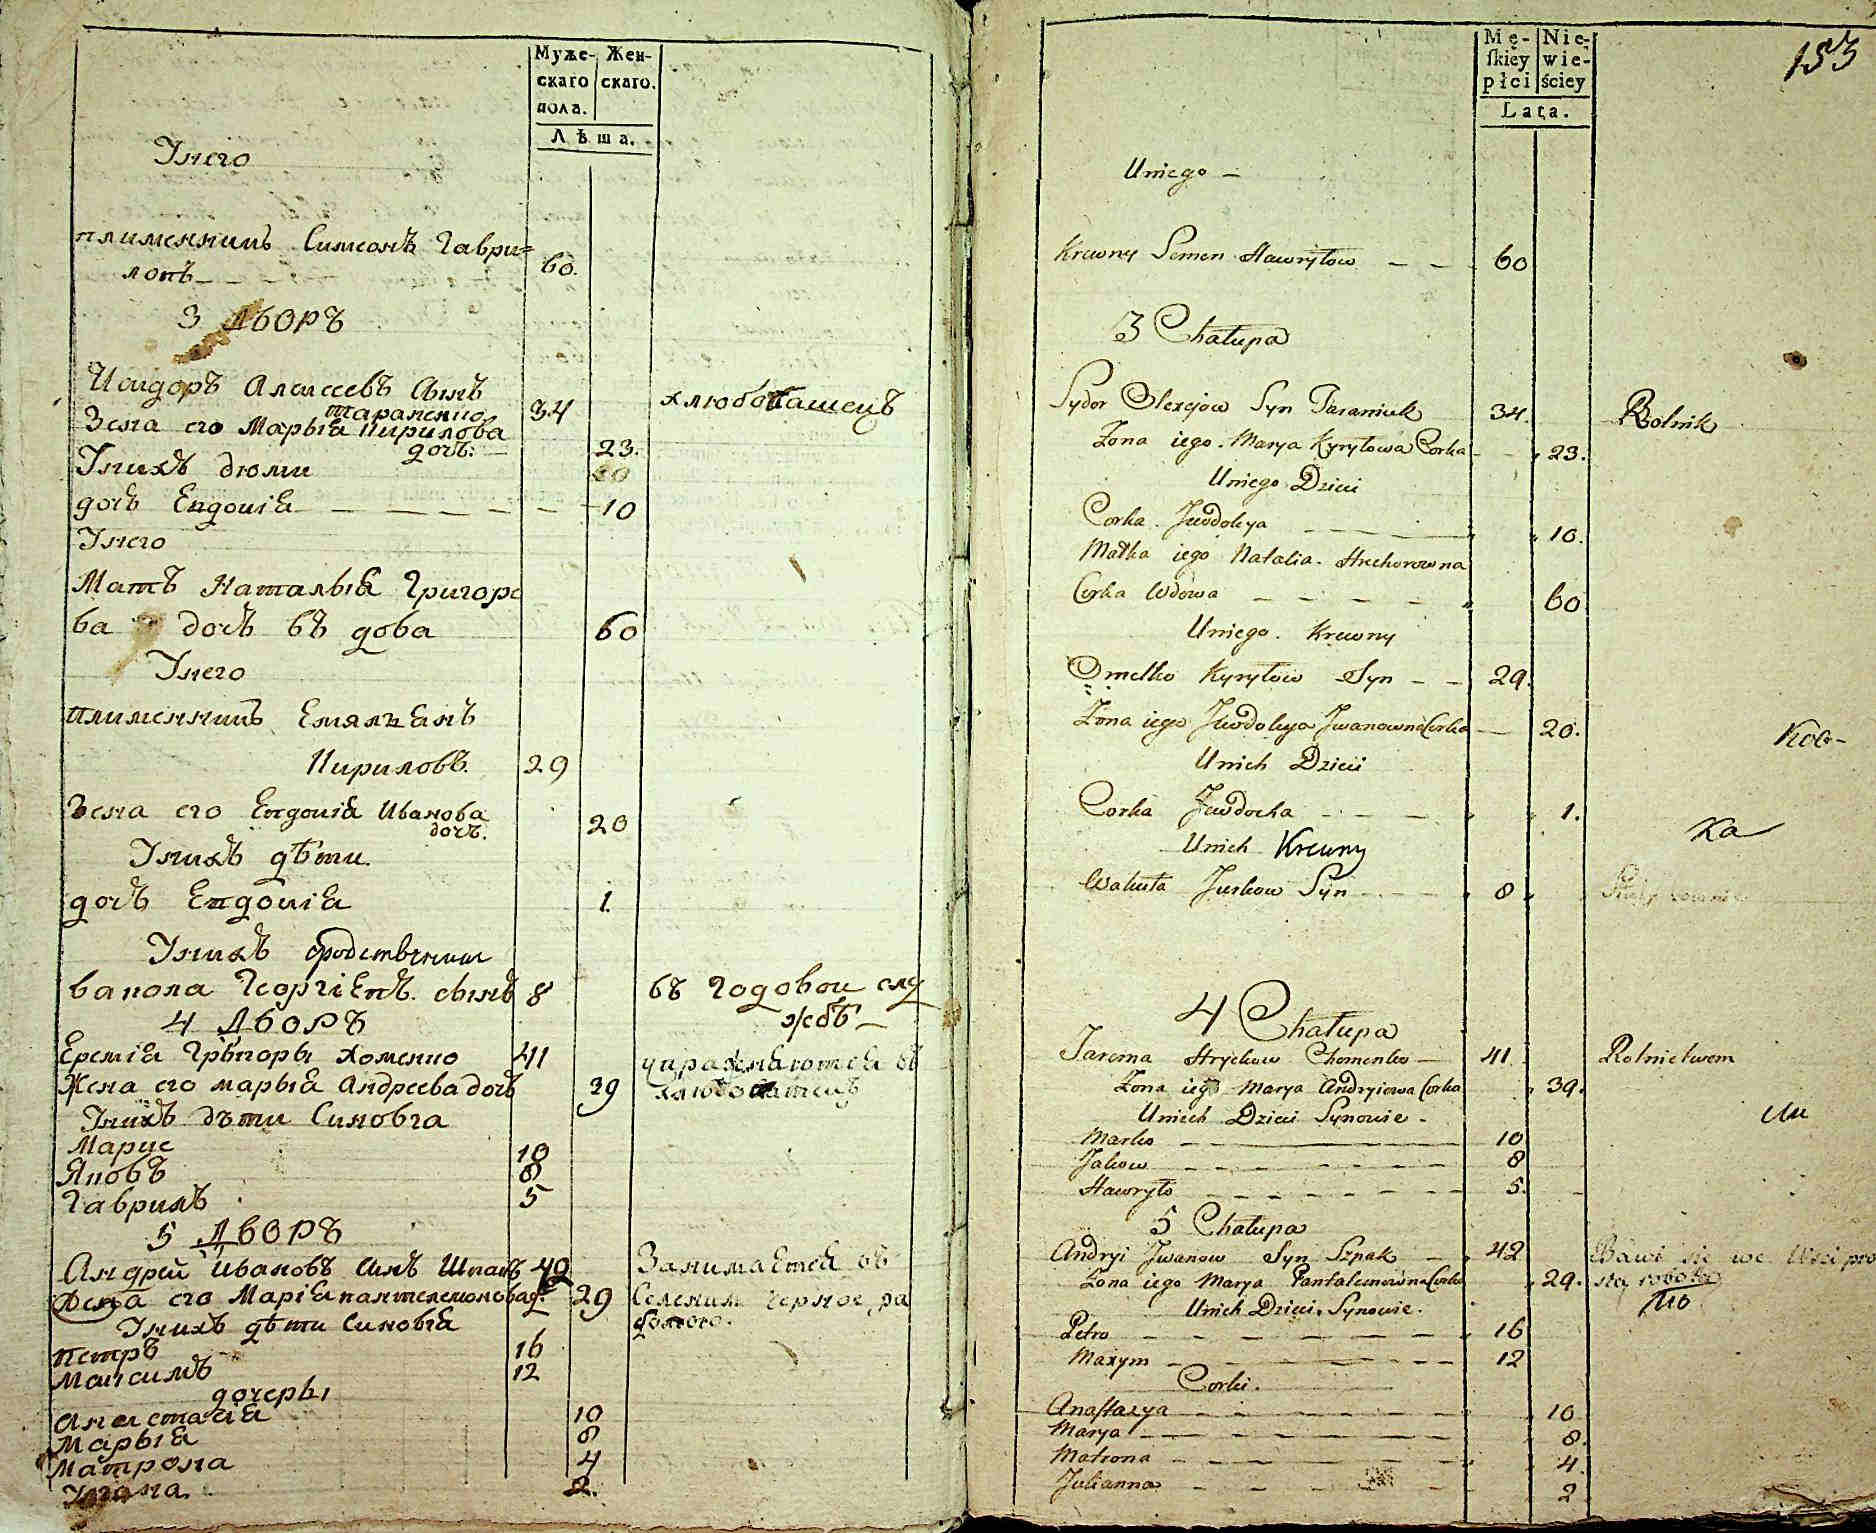 Муже-
скаго
пола.
Жен-
скаго.
Лѣта.
Унего
племенникъ Симеонъ Гаври=
ловъ 60.
3 ДВОРЪ
Исидоръ Алексеевъ сынъ
тараненко 34 хлюбопашецъ
Зена его Марыя Кирилова
дочъ: 23.
Унихъ дюти
дочъ Евдокія 10
Унего
Матъ Наталыя Григоре
ва дочъ въ дова 60
Унего
племенникъ Емялиянъ
Кириловъ 29
Зена его Евдокія Иванова
дочъ. 20
Унихъ дѣти
дочъ Евдокія 1.
Унихъ сродственики
вакола Георгіевъ сынъ 8 въ годовои слу
жбѣ
4 ДВОРЪ
Еремія Грыгоры Хоменко 41 упражняются въ
Жена его марыя Андреева дочъ 39
Унихъ дѣти Синовя
Марке 10
Яковъ 8
Гаврилъ 5
5 ДВОРЪ
Андрей Ивановъ синъ Шпакъ 42 Занимается въ
Жена его Марія пантелемонова д: 29 Селении черною ра
Унихъ дѣти Синовя ботою.
Петръ 16
Максимъ 12
дочеры
Анастасія 10
Марыя 8
Матрона 4
Уляна 2.
153
Mę-
skiey
płci
Nie-
wie-
ściey
Lata.
Uniego
Krewny Semen Hawryłow 60
3 Chałupa
Sydor Olexejow Syn Taraniuk 34. Rolnik
Zona iego Marya Kyryłowa Corka 23.
Uniego Dzieci
Corka Jewdokya 10.
Matka iego Natalia Hrehorowna
Corka Wdowa 60
Uniego Krewny
Omelko Kyryłow Syn 29.
Zona iego Jewdokya Jwanowna Corka 20.
Unich Dzieci
Corka Jewdocha 1.
Unich Krewny
Wakuła Jurkow Syn 8
4 Chałupa
Jarema Hryckow Chomenko 41 Rolnictwem
Zona iego Marya Andryiowa Corka 39.
Unich Dzieci Synowie
Marko 10
Jakow 8
Hawryło 5.
5 Chałupa
Andryi Jwanow Syn Szpak 42 Bawi się we Wsi pro
Zona iego Marya Pantalemowna Corka 29. stą robotą
Unich Dzieci Synowie.
Petro 16
Maxym 12
Corki.
Anastazya 10
Marya 8.
Matrona 4.
Julianna 2